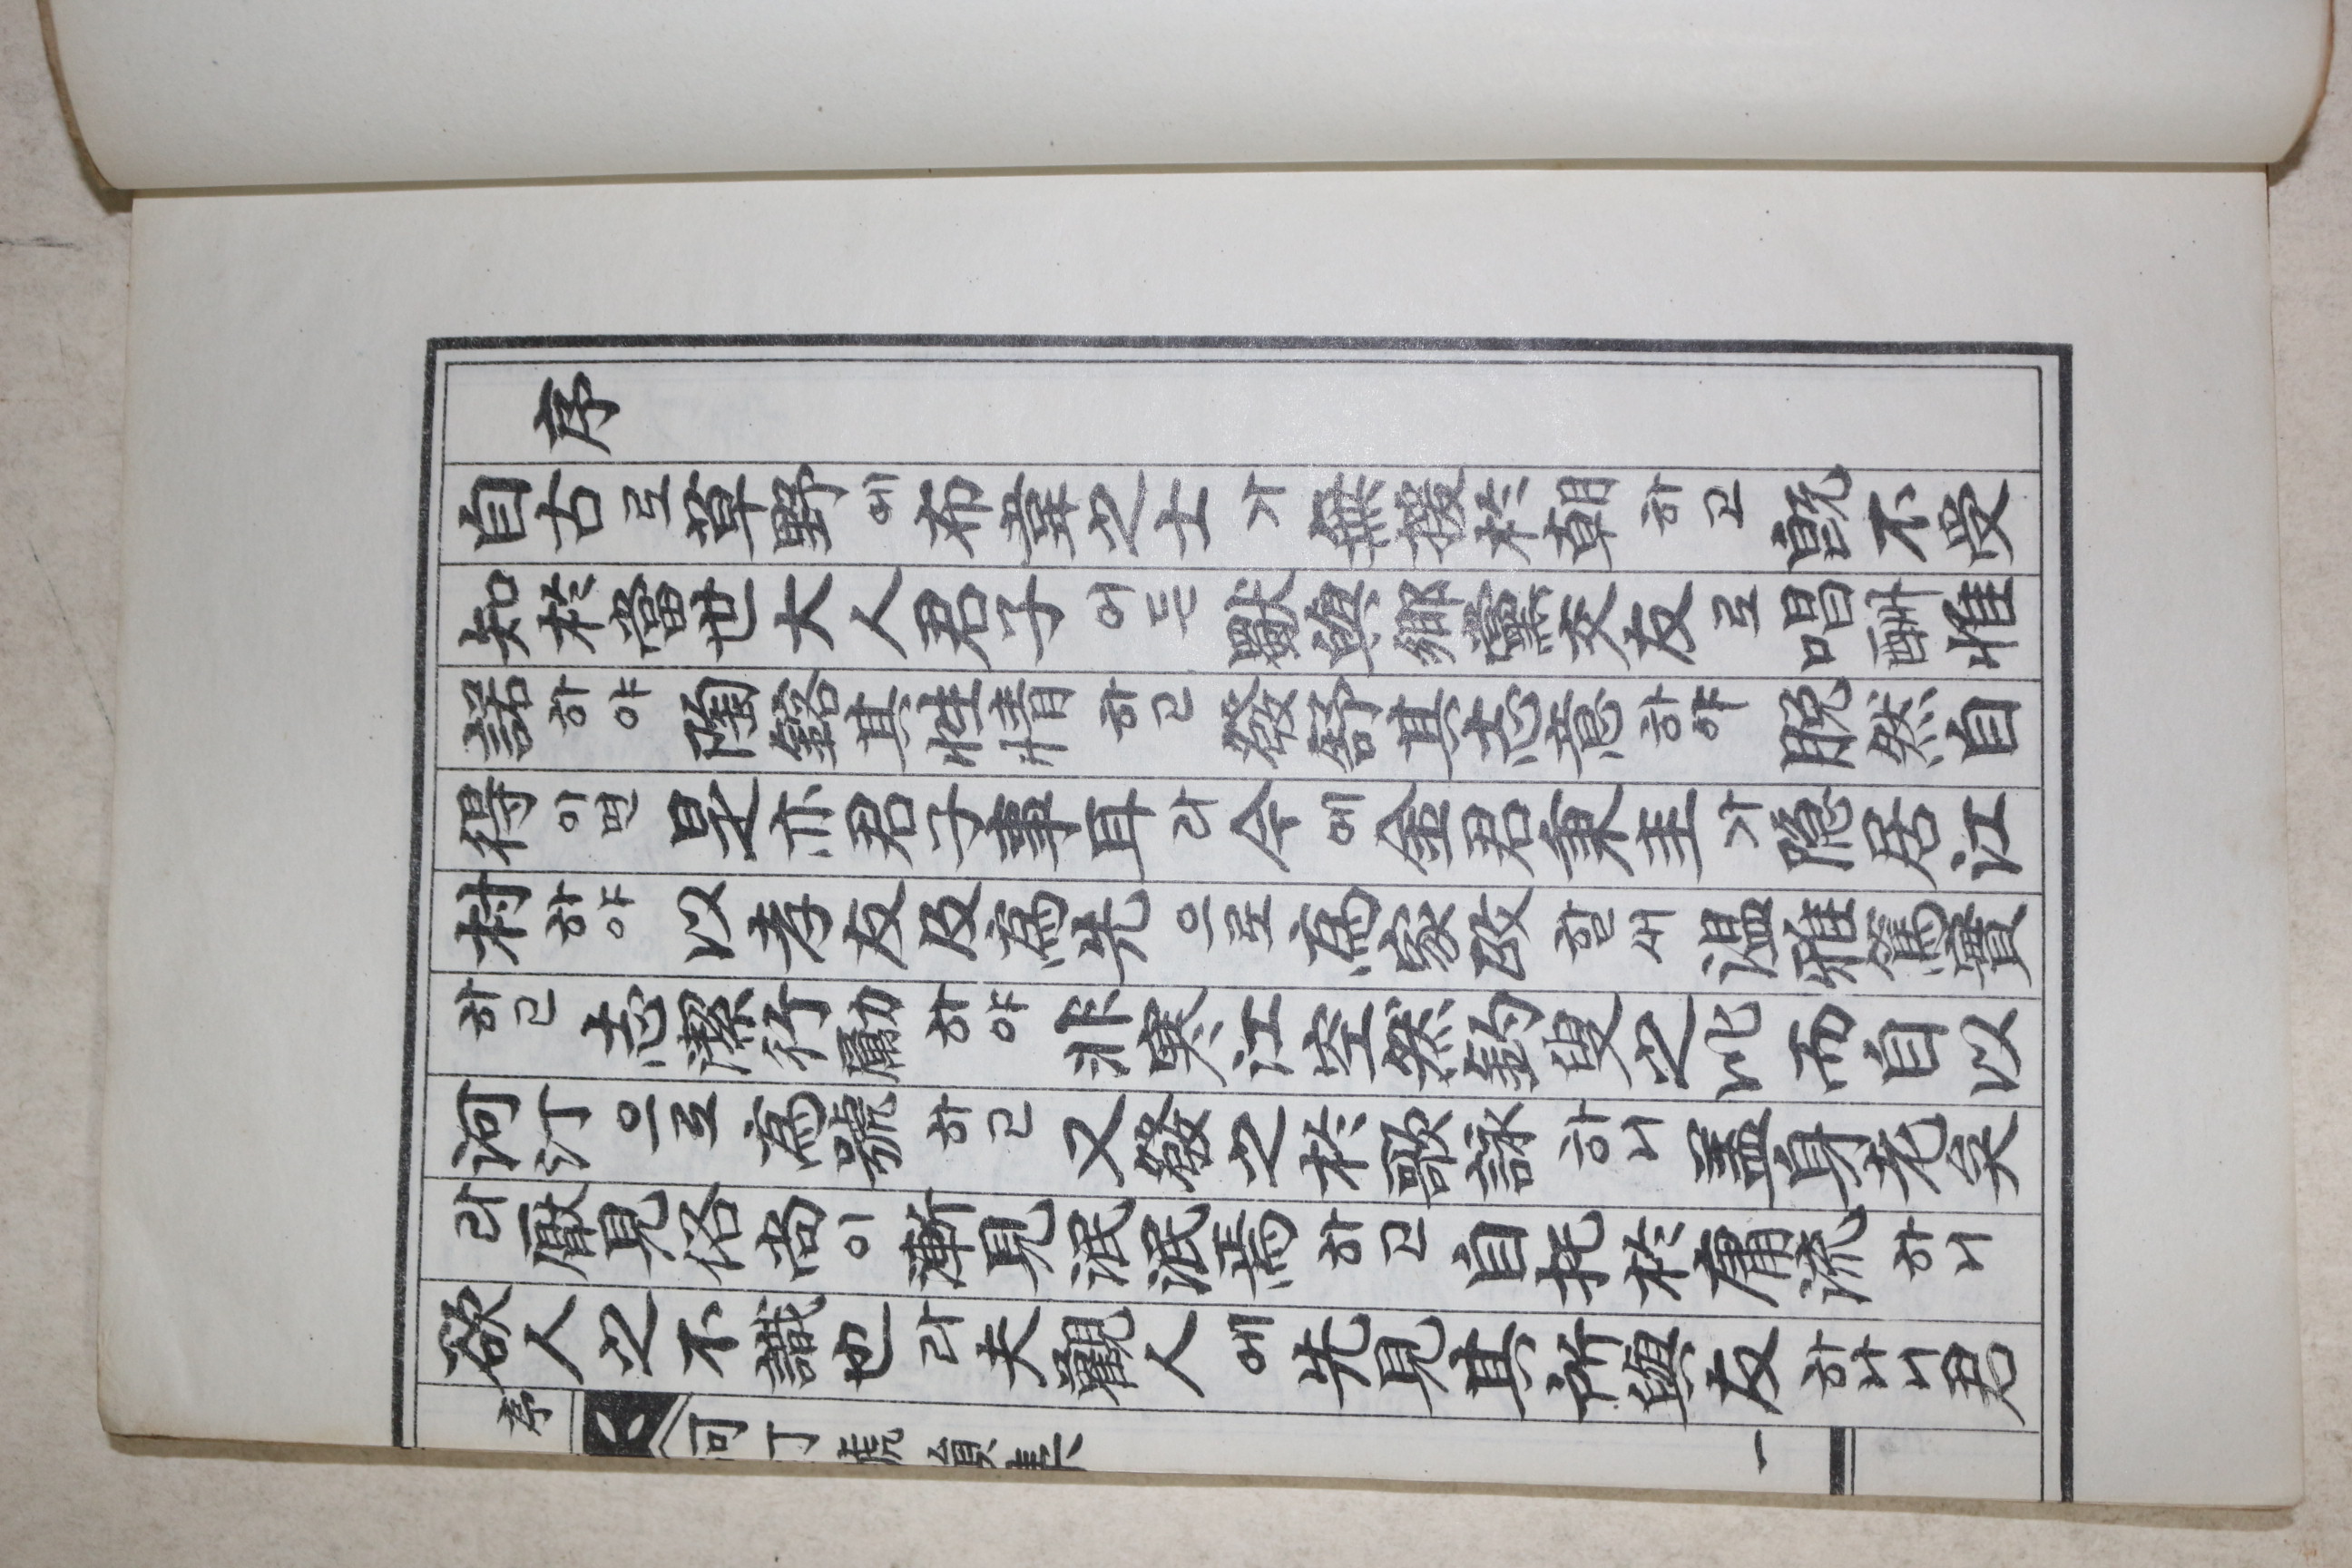 序
自古로草野에布韋之士가無援於朝하고旣不受
知於當世大人君子이든與鄕黨交友로唱酬惟
諾하야陶鎔其性情하고發舒其志意하야脫然自
得이면是亦君子事耳라今에金君秉圭가隱居江
村하야以孝友及爲先으로爲家政할새溫雅篤實
하고志潔行勵하야非寒江空然釣叟之比而自以
河汀으로爲號하고又發之於歌詠하니蓋身老矣
라厭見俗尙이漸見泯泯焉하고自托於庸流하니
欲人之不識也라夫觀人에先見其所與友하나니君
序 河汀號韻集 一